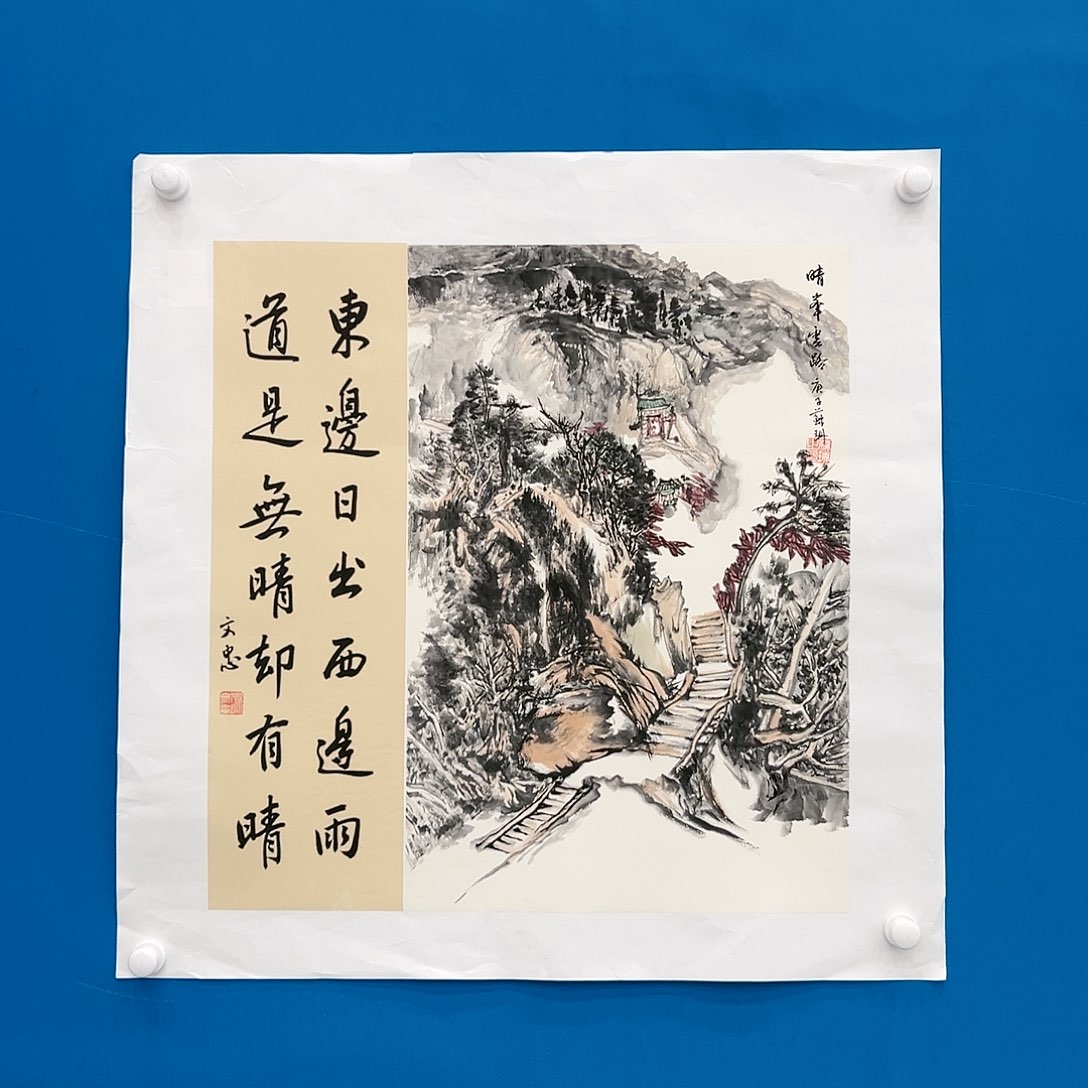 晴峯
庚子
東邊日出西邊雨
道是無晴却有晴
文忠